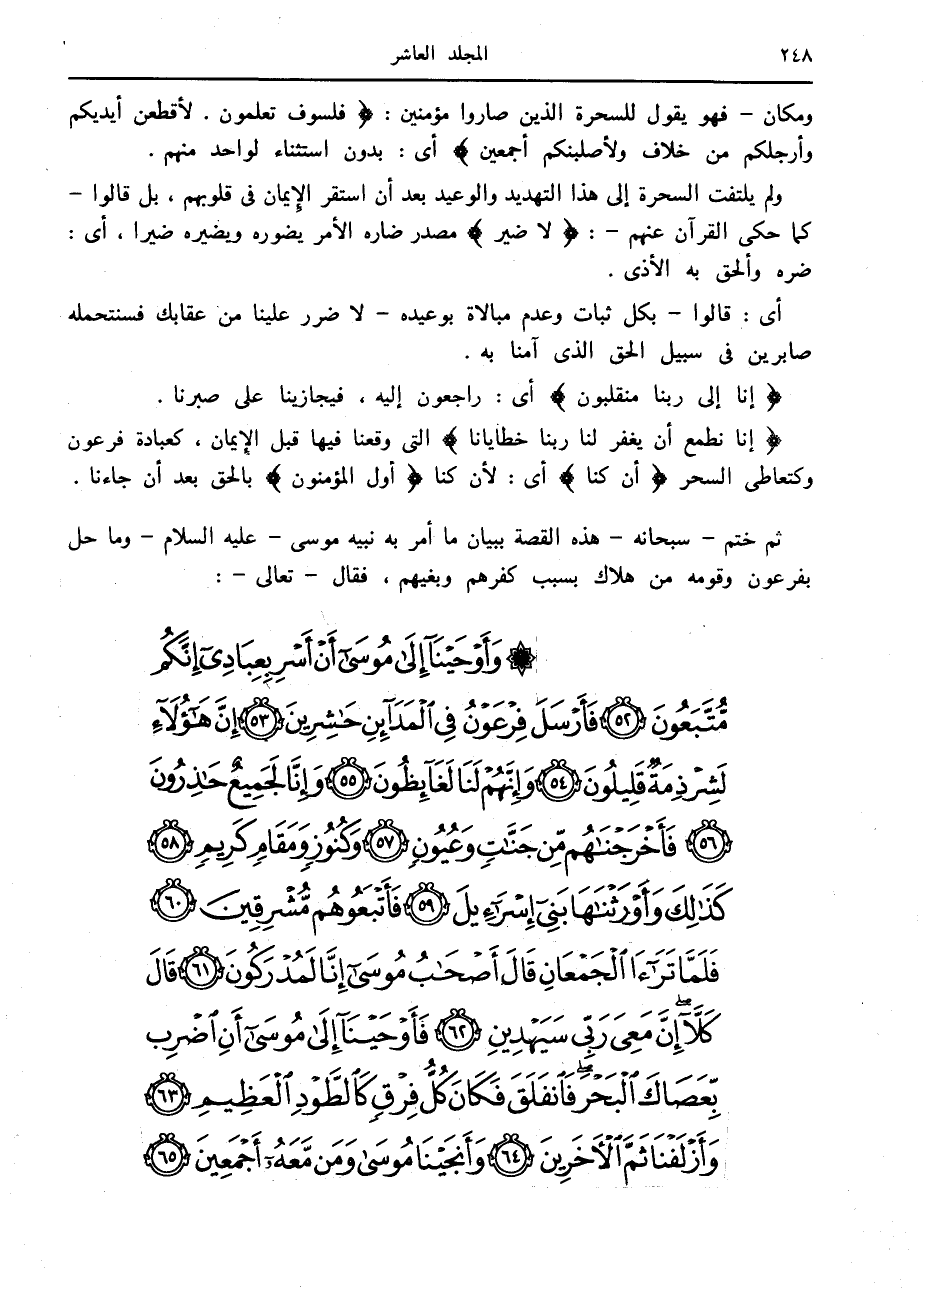 ٢٤٨ المجلد العاشر
ومكان – فهو يقول للسحرة الذين صاروا مؤمنين : ﴿ فلسوف تعلمون . لأقطعن أيديكم
وأرجلكم من خلاف ولأصلبنكم أجمعين ﴾ أى : بدون استثناء لواحد منهم .
ولم يلتفت السحرة إلى هذا التهديد والوعيد بعد أن استقر الإيمان فى قلوبهم ، بل قالوا –
كما حكى القرآن عنهم – : ﴿ لا ضير ﴾ مصدر ضاره الأمر يضوره ويضيره ضيرا ، أى :
ضره وألحق به الأذى .
أى : قالوا – بكل ثبات وعدم مبالاة بوعيده – لا ضرر علينا من عقابك فسنتحمله
صابرين فى سبيل الحق الذى آمنا به .
﴿ إنا إلى ربنا منقلبون ﴾ أى : راجعون إليه ، فيجازينا على صبرنا .
﴿ إنا نطمع أن يغفر لنا ربنا خطايانا ﴾ التى وقعنا فيها قبل الإيمان ، كعبادة فرعون
وكتعاطى السحر ﴿ أن كنا ﴾ أى : لأن كنا ﴿ أول المؤمنون ﴾ بالحق بعد أن جاءنا .
ثم ختم – سبحانه – هذه القصة ببيان ما أمر به نبيه موسى – عليه السلام – وما حل
بفرعون وقومه من هلاك بسبب كفرهم وبغيهم ، فقال – تعالى – :
۞ وَأَوْحَيْنَآ إِلَىٰ مُوسَىٰٓ أَنْ أَسْرِ بِعِبَادِىٓ إِنَّكُم
مُّتَّبَعُونَ ٥٢ فَأَرْسَلَ فِرْعَوْنُ فِى ٱلْمَدَآئِنِ حَٰشِرِينَ ٥٣ إِنَّ هَٰٓؤُلَآءِ
لَشِرْذِمَةٌ قَلِيلُونَ ٥٤ وَإِنَّهُمْ لَنَا لَغَآئِظُونَ ٥٥ وَإِنَّا لَجَمِيعٌ حَٰذِرُونَ
٥٦ فَأَخْرَجْنَٰهُم مِّن جَنَّٰتٍ وَعُيُونٍ ٥٧ وَكُنُوزٍ وَمَقَامٍ كَرِيمٍ ٥٨
كَذَٰلِكَ وَأَوْرَثْنَٰهَا بَنِىٓ إِسْرَٰٓءِيلَ ٥٩ فَأَتْبَعُوهُم مُّشْرِقِينَ ٦٠
فَلَمَّا تَرَٰٓءَا ٱلْجَمْعَانِ قَالَ أَصْحَٰبُ مُوسَىٰٓ إِنَّا لَمُدْرَكُونَ ٦١ قَالَ
كَلَّآ ۖ إِنَّ مَعِىَ رَبِّى سَيَهْدِينِ ٦٢ فَأَوْحَيْنَآ إِلَىٰ مُوسَىٰٓ أَنِ ٱضْرِب
بِّعَصَاكَ ٱلْبَحْرَ ۖ فَٱنفَلَقَ فَكَانَ كُلُّ فِرْقٍ كَٱلطَّوْدِ ٱلْعَظِيمِ ٦٣
وَأَزْلَفْنَا ثَمَّ ٱلْأَخَرِينَ ٦٤ وَأَنجَيْنَا مُوسَىٰ وَمَن مَّعَهُۥٓ أَجْمَعِينَ ٦٥